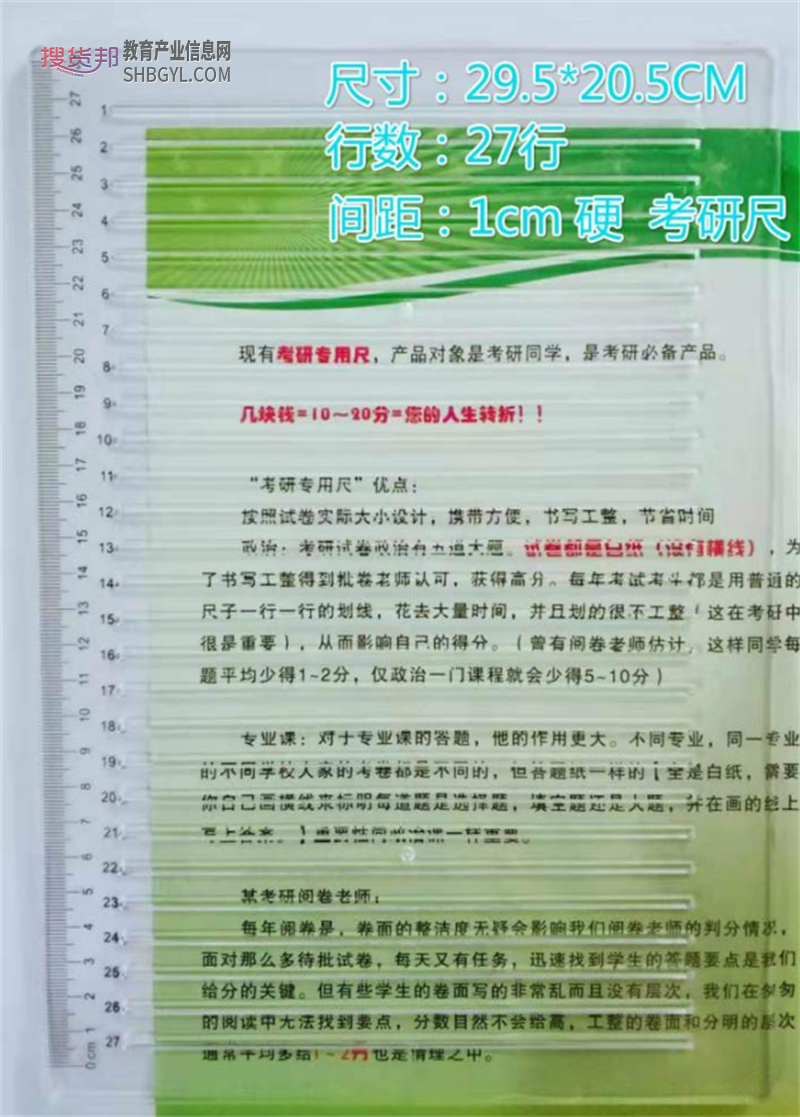 搜货邦 教育产业信息网
SHBGYL.COM
尺寸：29.5*20.5CM
行数：27行
间距：1cm 硬 考研尺
现有考研专用尺，产品对象是考研同学，是考研必备产品。
几块钱=10～20分=您的人生转折！！
“考研专用尺”优点：
按照试卷实际大小设计，携带方便，书写工整，节省时间
政治：考研试卷政治有五道大题。试卷都是白纸（没有横线），为
了书写工整得到批卷老师认可，获得高分。每年考试考生都是用普通的
尺子一行一行的划线，花去大量时间，并且划的很不工整（这在考研中
很是重要），从而影响自己的得分。（曾有阅卷老师估计，这样同学每
题平均少得1~2分，仅政治一门课程就会少得5~10分）
专业课：对于专业课的答题，他的作用更大。不同专业，同一专业
的不同学校大家的考卷都是不同的，但答题纸一样的【全是白纸，需要
你自己画横线来标明每道题是选择题，填空题还是大题，并在画的线上
写上答案。】重要性同政治课一样重要。
某考研阅卷老师：
每年阅卷是，卷面的整洁度无疑会影响我们阅卷老师的判分情况，
面对那么多待批试卷，每天又有任务，迅速找到学生的答题要点是我们
给分的关键。但有些学生的卷面写的非常乱而且没有层次，我们在匆匆
的阅读中无法找到要点，分数自然不会给高，工整的卷面和分明的层次
通常平均多给1～2分也是情理之中。
1
2
3
4
5
6
7
8
9
10
11
12
13
14
15
16
17
18
19
20
21
22
23
24
25
26
27
27
26
25
24
23
22
21
20
19
18
17
16
15
14
13
12
11
10
9
8
7
6
5
4
3
2
1
0cm